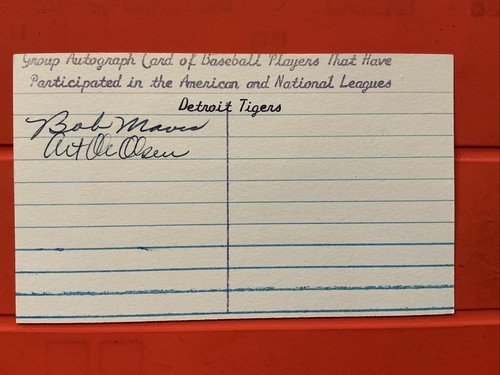 Group Autograph Card of Baseball Players That Have
Participated in the American and National Leagues
Detroit Tigers
Bob Mavis
Art Ole Olsen